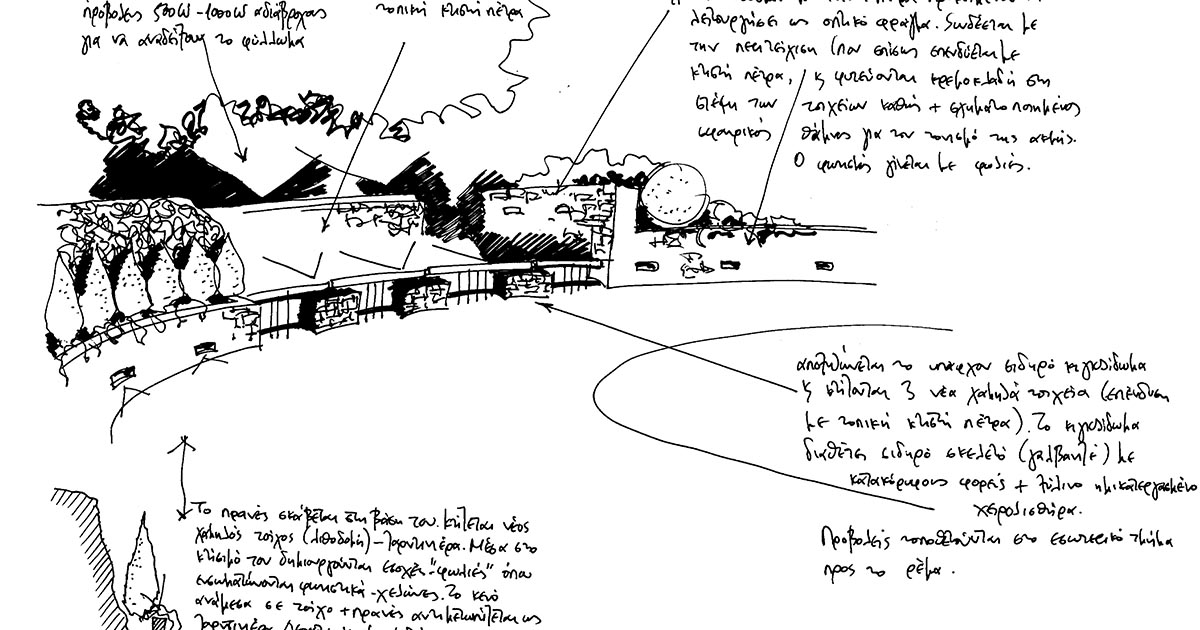 προβολείς 500W - 1000W αδιάβροχοι
για να αναδείξουν το φύλλωμα
τοπική κτιστή πέτρα
λειτουργήσει ως οπτικό φράγμα. Συνδέεται με
την περιτείχιση (που επίσης επενδύεται με
κτιστή πέτρα, ς φυτεύονται κρεμοκλαδή στη
στέψη των τοιχείων καθώς + σχηματοποιημένος
σφαιρικός θάμνος για τον τονισμό της ακμής.
Ο φωτισμός γίνεται με φωλιές.
αποξηλώνεται το υπάρχον σιδηρό κιγκλίδωμα
ς κτίζονται 3 νέα χαμηλά τοιχεία (επένδυση
με τοπική κτιστή πέτρα). Το κιγκλίδωμα
διαθέτει σιδηρό σκελετό (γαλβανιζέ) με
κατακόρυφους φορείς + ξύλινο ημικατεργασμένο
χειρολισθήρα.
Προβολείς τοποθετούνται στο εσωτερικό τμήμα
προς το ρέμα.
Το πρανές σκάβεται στη βάση του. Κτίζεται νέος
χαμηλός τοίχος (λιθοδομή) - ζαρντινιέρα. Μέσα στο
κτισμό του δημιουργούνται εσοχές "φωλιές" όπου
ενσωματώνονται φωτιστικά - χελώνες. Το κενό
ανάμεσα σε τοίχο + πρανές αντιμετωπίζεται ως
ζαρντινιέρα